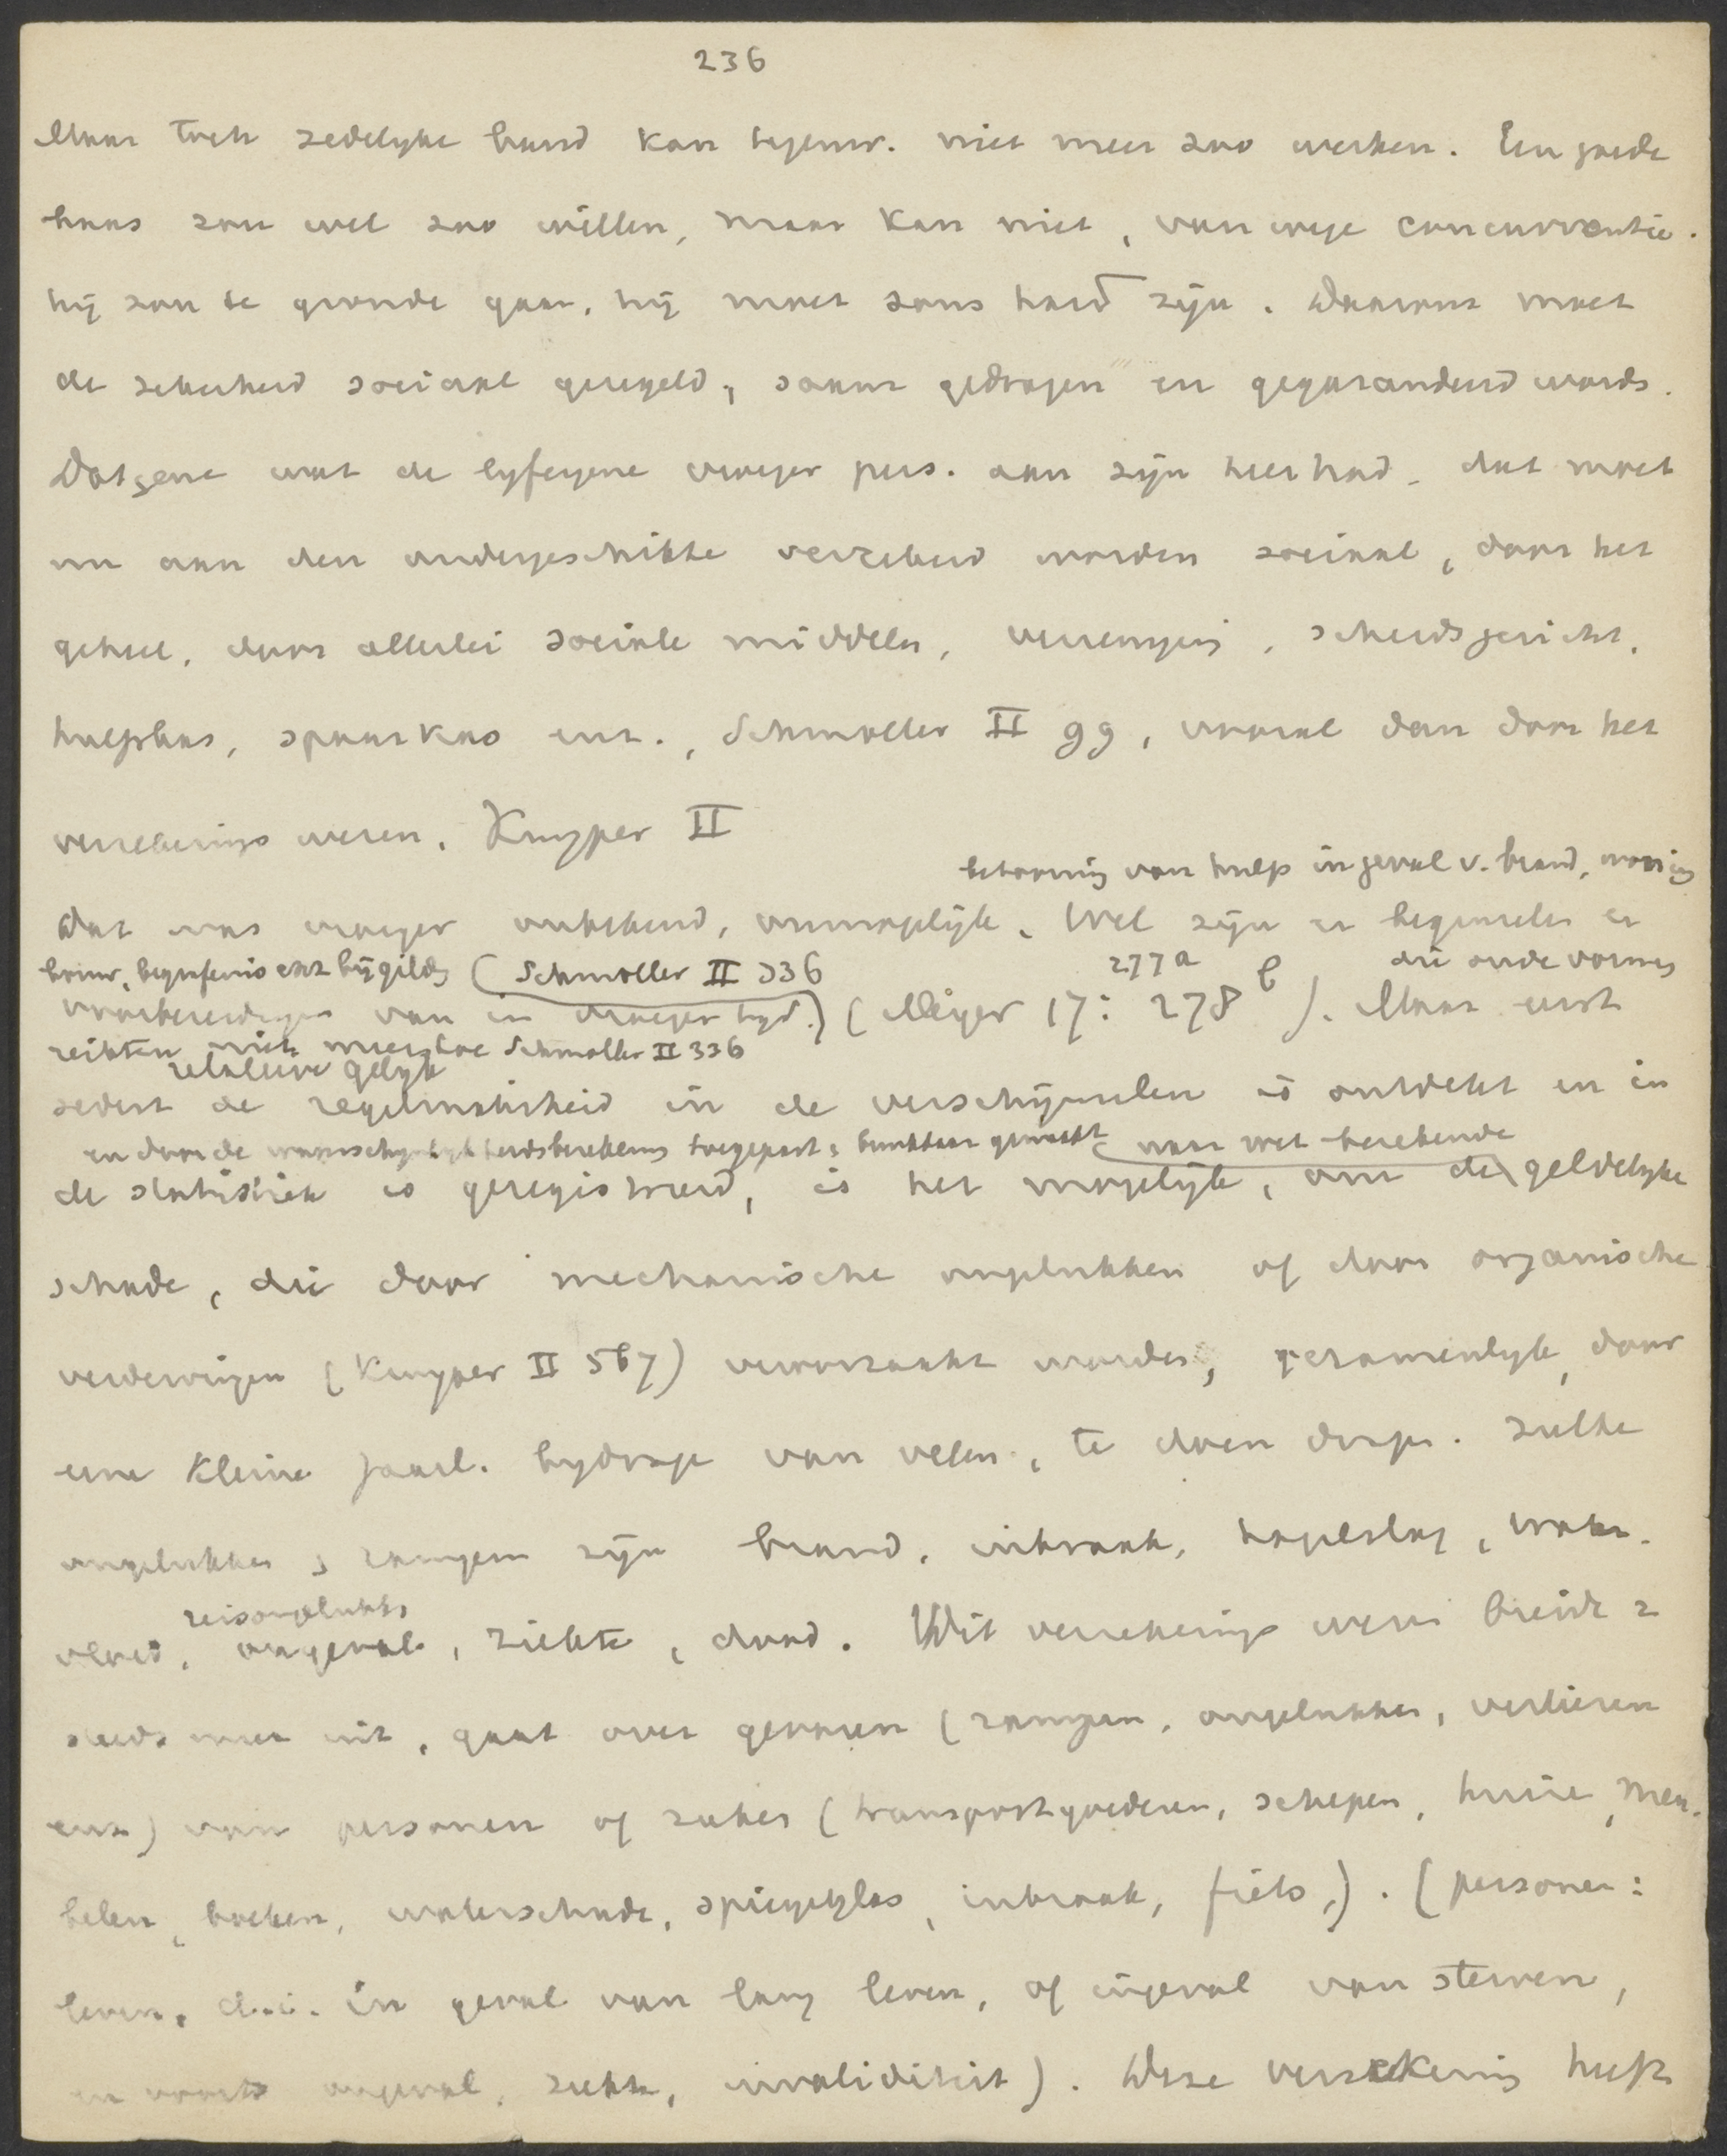 236
Maar toch zedelyke band kan tegenw. niet meer zoo werken. Een goede
baas zou wel zoo willen, maar kan niet, van wege concurrentie.
hij zou te gronde gaan, hij moet soms hard zijn. Daarom moet
de zekerheid sociaal geregeld, saam gedragen en gegarandeerd word.
Datgene wat de lyfeigene vroeger pers. aan zijn heer had, dat moet
nu aan den ondergeschikte verzekerd worden sociaal, door het
geheel, door allerlei sociale middelen, vereenging, scheidsgericht,
hulpkas, spaarkas enz., Schmoller II 99, vooral dan door het
verzekerings wezen. Kuyper II
betooning van hulp in geval v. brand,
Dat was vroeger onbekend, onmogelijk. Wel zijn er beginselen en
begrafenis enz bij gilds (Schmoller II 336 277a die oude vormen
voorbereidingen van in vroeger tyd.) (Meyer 17: 278 b). Maar eerst
reikten niet meer toe Schmoller II 336
relatieve gelyk
sedert de regelmatigheid in de verschijnselen is ontdekt en in
en door de waarschynlykheidsberekening toegepast & bruikbaar gemaakt van wet berekende
de statistiek is geregistreerd, is het mogelijk, om de geldelyke
schade, die door mechanische ongelukken of door organische
verdervingen (Kuyper II 567) veroorzaakt worden, gezamenlyk, door
eene kleine jaarl. bydrage van velen, te doen dragen. Zulke
ongelukken & rampen zijn brand, inbraak, hagelslag, water-
reisongelukken
vloed, ongeval, ziekte, dood. Dit verzekerings wezen breidt z
steeds meer uit, gaat over gevaren (rampen, ongelukken, verliezen
enz) van personen of zaken (transportgoederen, schepen, huize, meu-
belen, boeken, waterschade, spiegelglas, inbraak, fiets,). (personen:
leven, d.i. in geval van lang leven, of ingeval van sterven,
en voorts ongeval, ziekte, invaliditeit). Deze verzekering heeft